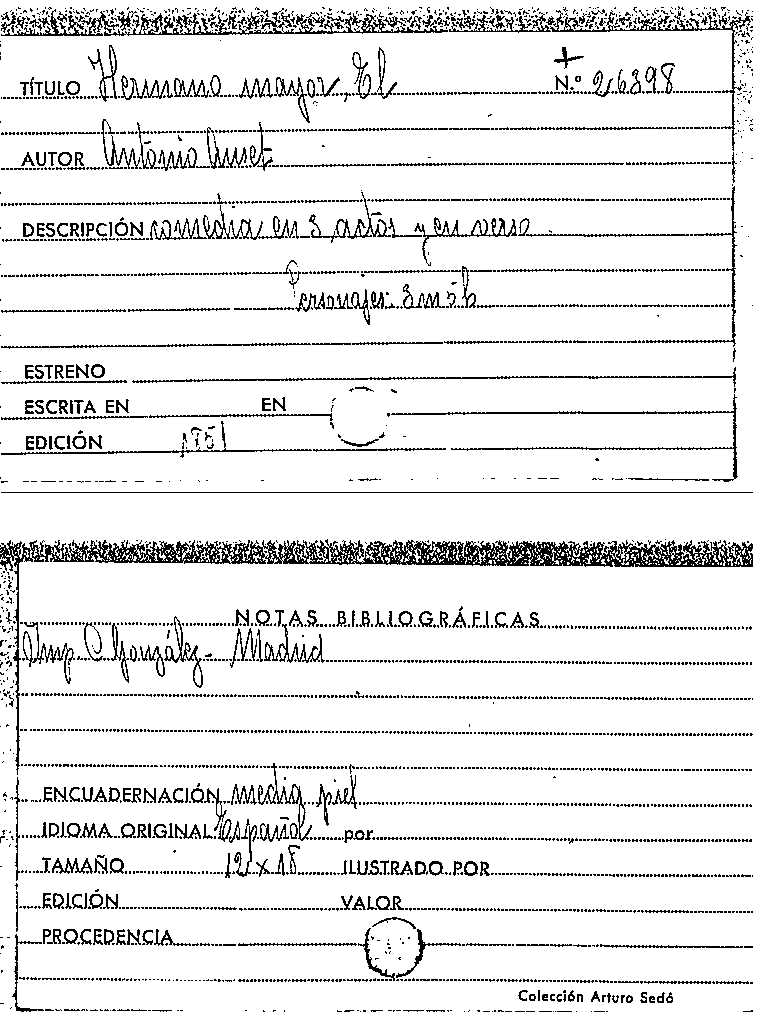 TÍTULO Hermano mayor, El
+
N.º 26398
AUTOR Antonio Auset
DESCRIPCIÓN comedia en 3 actos y en verso.
Personajes: 3m 5h
ESTRENO
ESCRITA EN EN
EDICIÓN 1851
NOTAS BIBLIOGRÁFICAS
Imp C González - Madrid
ENCUADERNACIÓN media piel
IDIOMA ORIGINAL Español por
TAMAÑO 12 x 18 ILUSTRADO POR
EDICIÓN VALOR
PROCEDENCIA
Colección Arturo Sedó